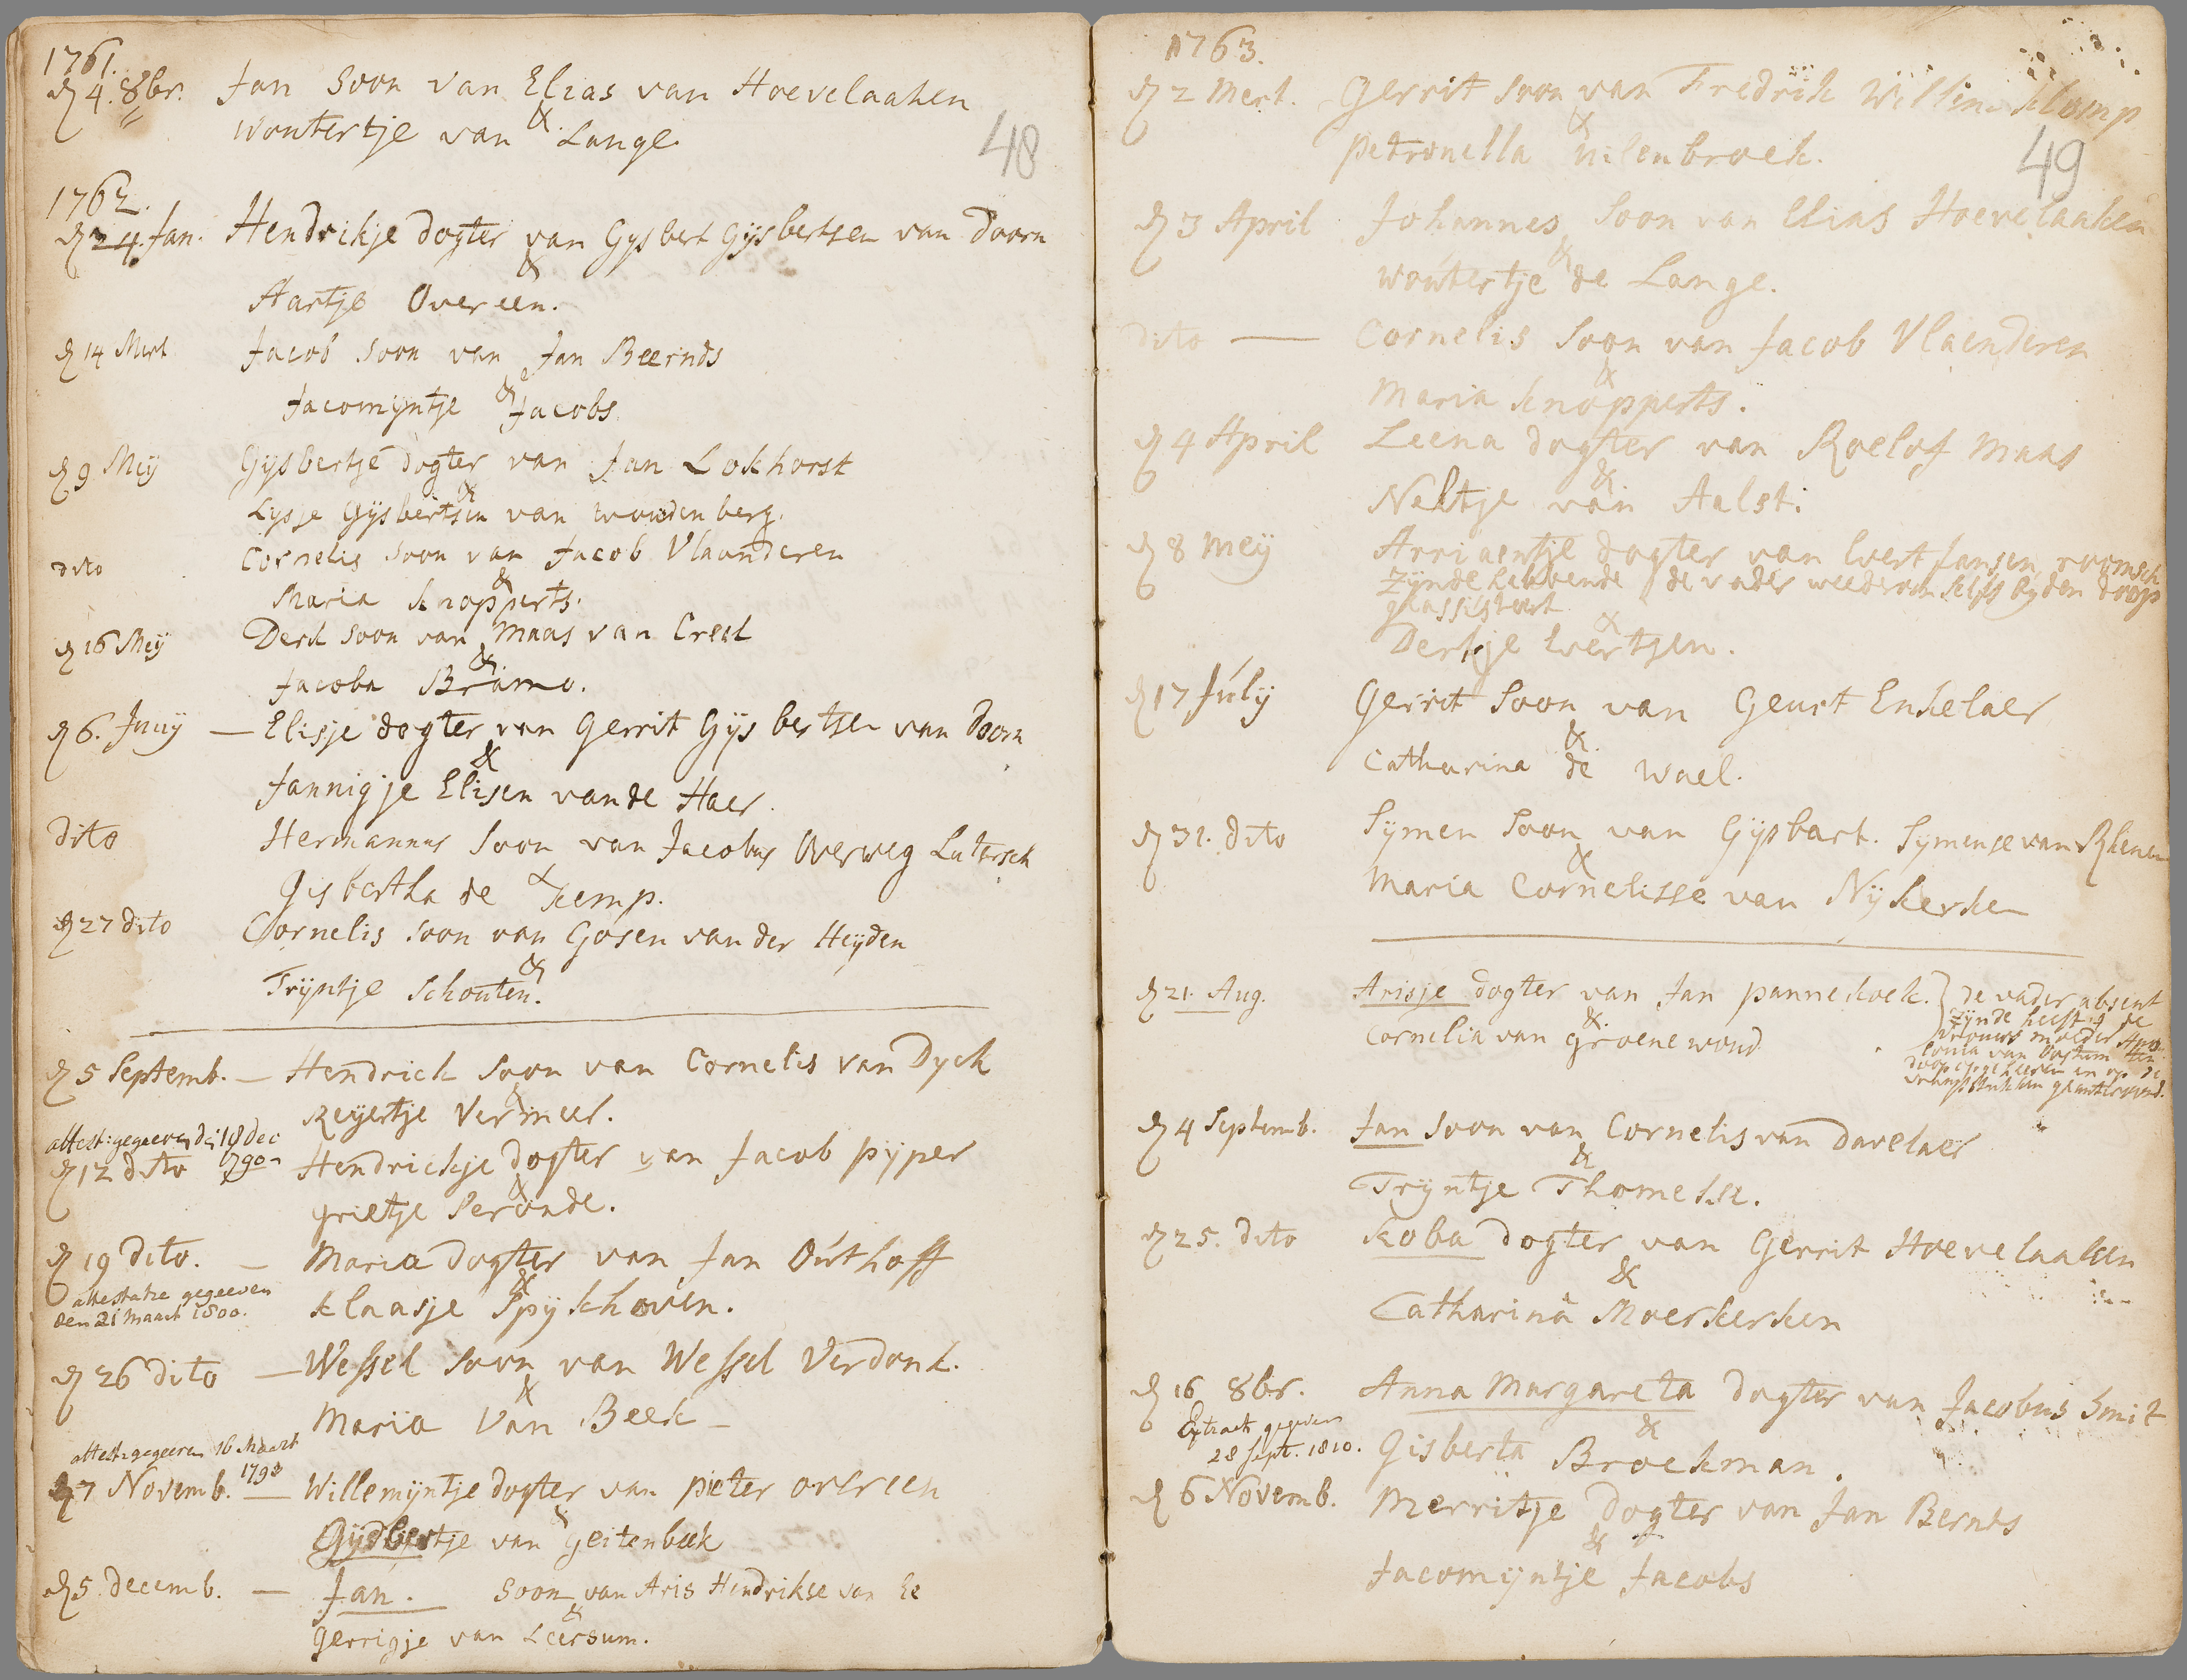 1761.
dn 4. 8br. Jan Soon van Elias van Hoevelaaken
&
Woutertje van Lange.
48
1762.
dn 24. Jan. Hendrikje dogter van Gysbert Gijsbertsen van Doorn
&
Aartje Overeen.
dn 14 Mert Jacob Soon van Jan Beernds
&
Jacomijntje Jacobs
dn 9 Meij Gijsbertje dogter van Jan Lokhorst
&
Lysje Gijsbertsen van woudenberg.
dito Cornelis Soon van Jacob Vlaanderen
&
Maria Knopperts.
dn 16 Meij Derk Soon van Maas van Creel
&
Jacoba Bramo.
dn 6. Junij — Elisje dogter van Gerrit Gijsbertsen van Doorn
&
Jannigje Elisen vande Haer.
dito Hermannus Soon van Jacobus Overweg Lutersch
&
Gisbertha de Kemp.
dn 27 dito Cornelis Soon van Gosen van der Heijden
&
Trijntje Schouten.
dn 5 Septemb. — Hendrick Soon van Cornelis van Dyck
&
Reijertje Vermeer.
attest: gegeeven de 18 dec
1790
dn 12 dito Hendrickje dogter van Jacob pijper
&
grietje Peronde.
dn 19 dito. — Maria dogter van Jan Outhoff
&
attestatie gegeeven
den 21 Maart 1800.
Klaasje Spijkhoven.
dn 26 dito — Wessel Soon van Wessel Verdonk.
&
Maria van Beek —
attest: gegeeven 16 Maart
1798
dn 7 Novemb. — Willemijntje dogter van pieter overeen
&
Gijsbertje van geitenbeek
dn 5 decemb. — Jan. Soon van Aris Hendrikse van Ee
&
gerrigje van Leersum.
1763.
dn 2 Mert. Gerrit Soon van Fredrik Willem Klomp
&
petronella uilenbroek.
49
dn 3 April Johannes Soon van Elias Hoevelaaken
&
woutertje de Lange.
dito — Cornelis Soon van Jacob Vlaenderen
&
Maria Knopperts.
dn 4 April Leena dogter van Roelof Maas
&
Neltje van Aalst.
dn 8 Meij Arriaentje dogter van Evert Jansen, roomsch
zijnde hebbende de vader weederom selfs bijden doop
geassisteert
&
Derkje Evertsen.
dn 17 Julij Gerrit Soon van Geurt Enkelaer
&
Catharina de Wael.
dn 31. dito Symen Soon van Gijsbart. Symense van Rhenen
&
Maria Cornelisse van Nijkerken
dn 21. Aug. Arisje dogter van Jan pannekoek. } De vader absent
&
Cornelia van groenewoud
zijnde heeft de
vrouws moeder Apo
lonia van Oostum ten
doop opgeheeven en op de
vraagstukken geantwoord.
dn 4 Septemb. Jan Soon van Cornelis van Davelaer
&
Trijntje Thomesse.
dn 25. dito Koba dogter van Gerrit Hoevelaaken
&
Catharina Moerkerken
dn 16 8br. Anna Margareta dogter van Jacobus Smit
&
Extract gegeven
28 Sept. 1810.
Gisberta Broekman.
dn 6 Novemb. Merritje dogter van Jan Bernts
&
Jacomijntje Jacobs